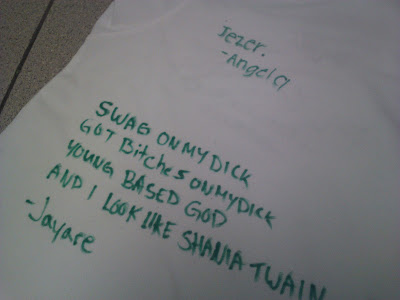 Jezer.
-Angela
SWAG ON MY DICK
GOT Bitches ON MY DICK
YOUNG BASED GOD
AND I LOOK LIKE SHANIA TWAIN
-Jayare